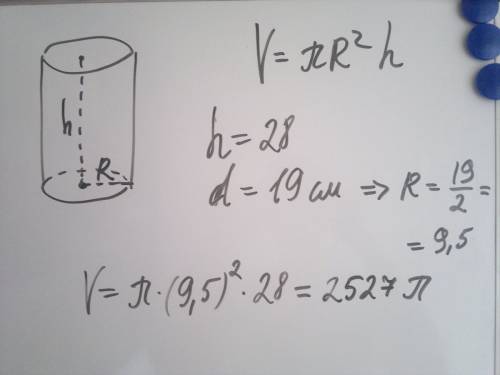 V = πR² h
h
R
h = 28
d = 19 см => R = 19/2 =
= 9,5
V = π · (9,5)² · 28 = 2527 π